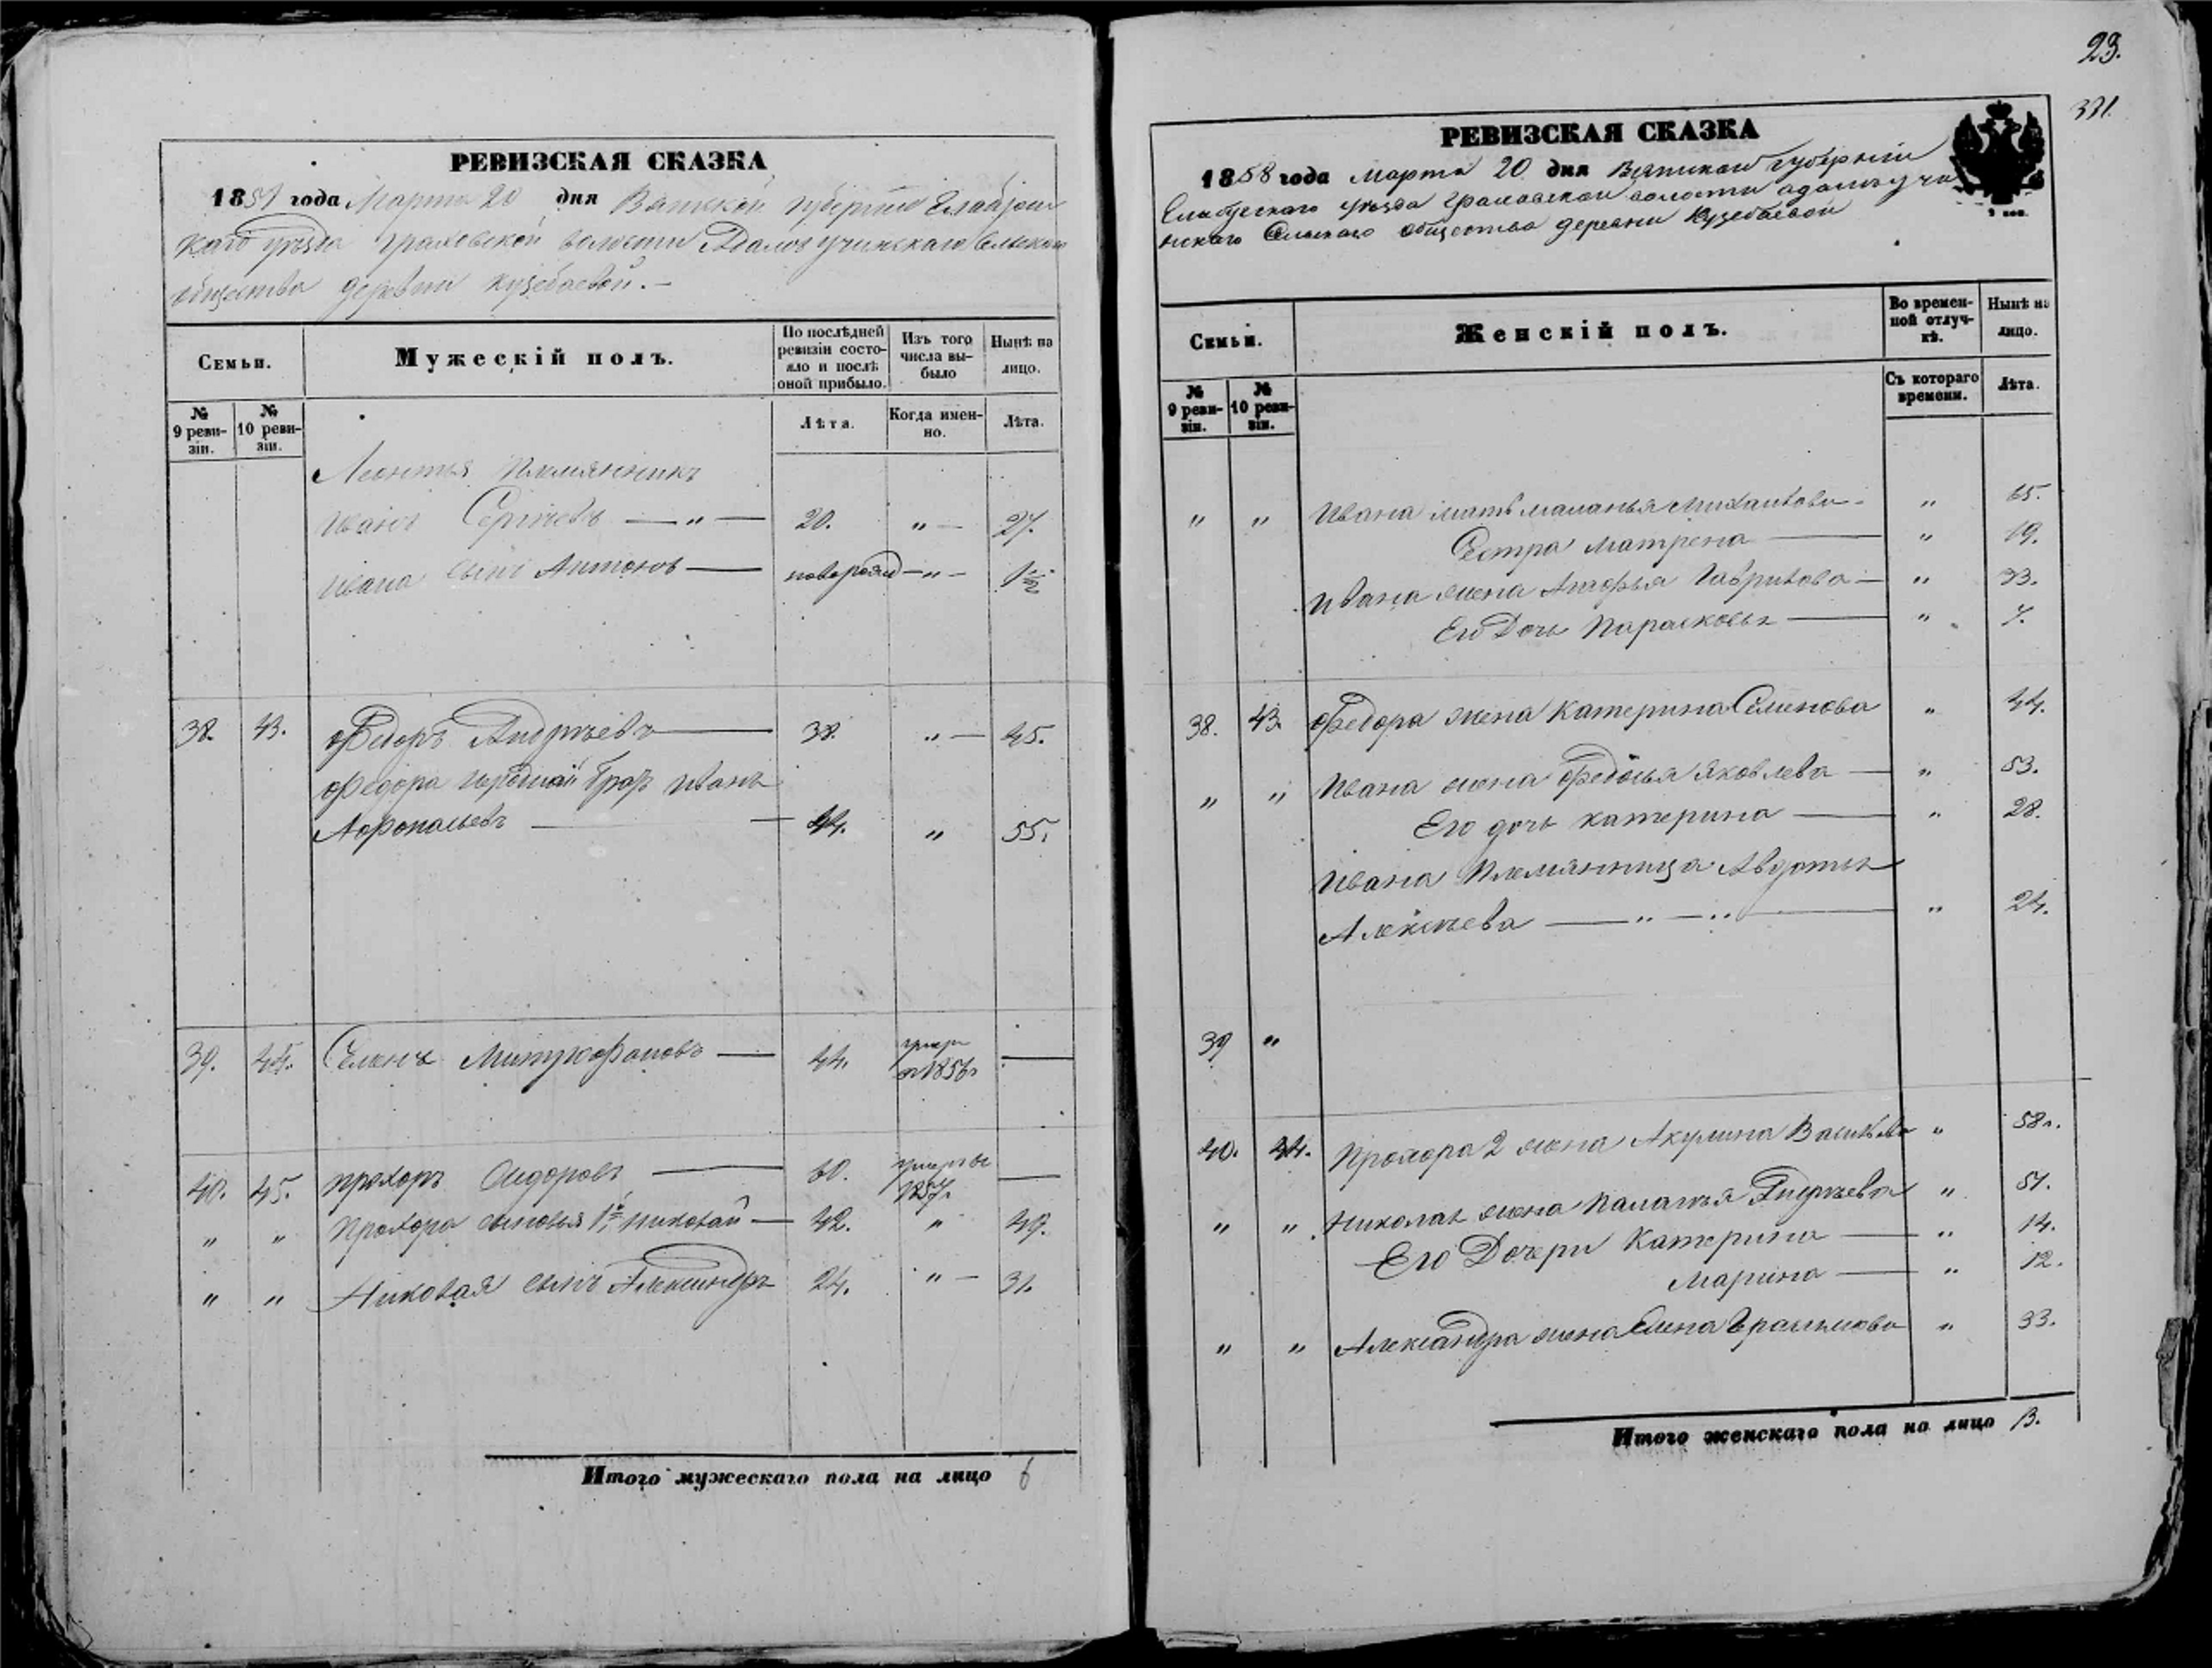 РЕВИЗСКАЯ СКАЗКА
1858 года Марта 20 дня Вятской губернии Елабужс
каго уѣзда Граховской волости Адамъ учинскаго Сельскаго
общества деревни Кузебаевой.-
Семьи.
Мужескій полъ.
По послѣдней ревизіи состояло и послѣ оной прибыло.
Изъ того числа выбыло
Нынѣ на лицо.
№ 9 ревизіи.
№ 10 ревизіи.
Лѣта.
Когда именно.
Лѣта.
Леонтья племянникъ
Иванъ Сергѣевъ — " — 20. " — 27.
Ивана сынъ Антонъ — новорожд — " — 1½
38. 43. Федоръ Андрѣевъ — 38. " — 45.
Федора Брат Иванъ
Афонасьевъ — 44. " 55.
39. 44. Семенъ Митрофановъ — 44. умер в 1856г —
40. 45. Прохоръ Сидоровъ — 60. умер въ 1857г. —
" " Прохора сыновья 1й Николай — 42. " 49.
" " Николая сынъ Александръ 24. " — 31.
Итого мужескаго пола на лицо 6
23.
331.
РЕВИЗСКАЯ СКАЗКА
1858 года Марта 20 дня Вятской губернии
Елабужскаго уѣзда Граховской волости Адамъ учи
нскаго Сельскаго общества деревни Кузебаевой
Семьи.
Женскій полъ.
Во временной отлучкѣ.
Нынѣ на лицо.
№ 9 ревизіи.
№ 10 ревизіи.
Съ котораго времени.
Лѣта.
" " Ивана мать Маланья Михайлова - " 65.
Сестра Матрена — " 19.
Ивана жена Гаврилова — " 33.
Его Дочь Парасковья — " 7.
38. 43. Федора жена Катерина Семенова " 44.
" " Ивана жена Федосья Яковлева — " 53.
Его дочь Катерина — " 28.
Ивана Племянница Авдотья
Алексѣева — " — " — " 24.
39 "
40. 44. Прохора 2 жена Акулина Васильева " 58.
" " Николая жена Паланья Андрѣева " 51.
Его Дочери Катерина — " 14.
Марина — " 12.
" " Александра жена Елена Герасимова " 33.
Итого женскаго пола на лицо 13.